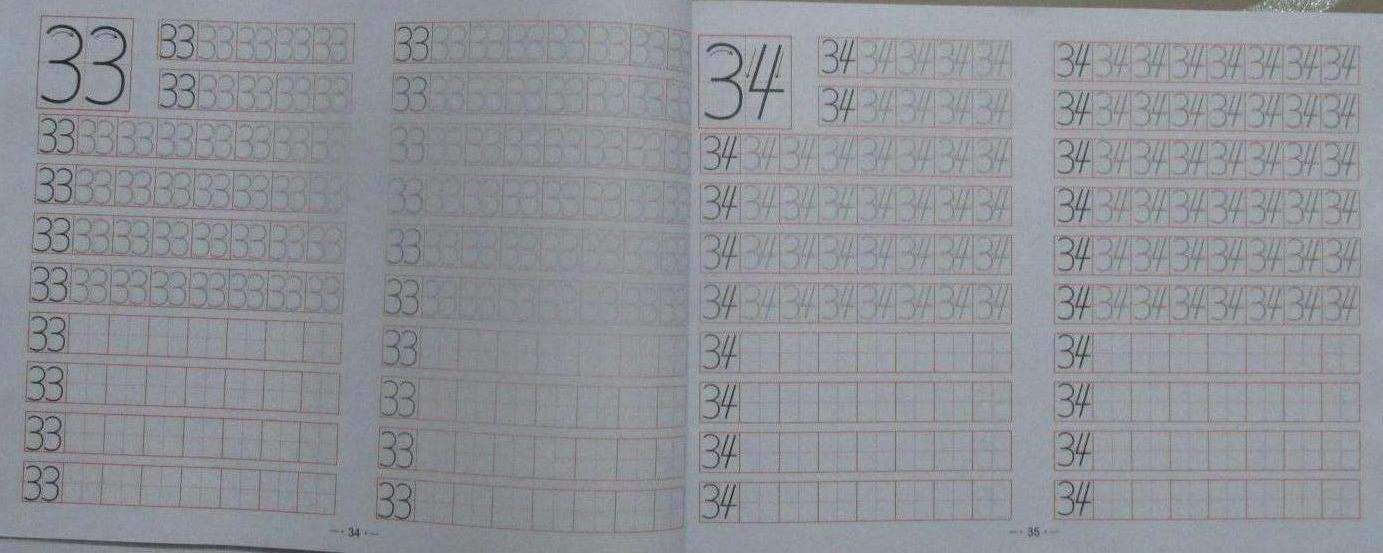 33
33 33 33 33 33
33 33 33 33 33
33 33 33 33 33 33 33 33
33 33 33 33 33 33 33 33
33 33 33 33 33 33 33 33
33 33 33 33 33 33 33 33
33
33
33
33
33 33 33 33 33 33 33 33
33 33 33 33 33 33 33 33
33 33 33 33 33 33 33 33
33 33 33 33 33 33 33 33
33 33 33 33 33 33 33 33
33 33 33 33 33 33 33 33
33
33
33
33
— · 34 · —
34
34 34 34 34 34
34 34 34 34 34
34 34 34 34 34 34 34 34
34 34 34 34 34 34 34 34
34 34 34 34 34 34 34 34
34 34 34 34 34 34 34 34
34
34
34
34
34 34 34 34 34 34 34 34
34 34 34 34 34 34 34 34
34 34 34 34 34 34 34 34
34 34 34 34 34 34 34 34
34 34 34 34 34 34 34 34
34 34 34 34 34 34 34 34
34
34
34
34
— · 35 · —